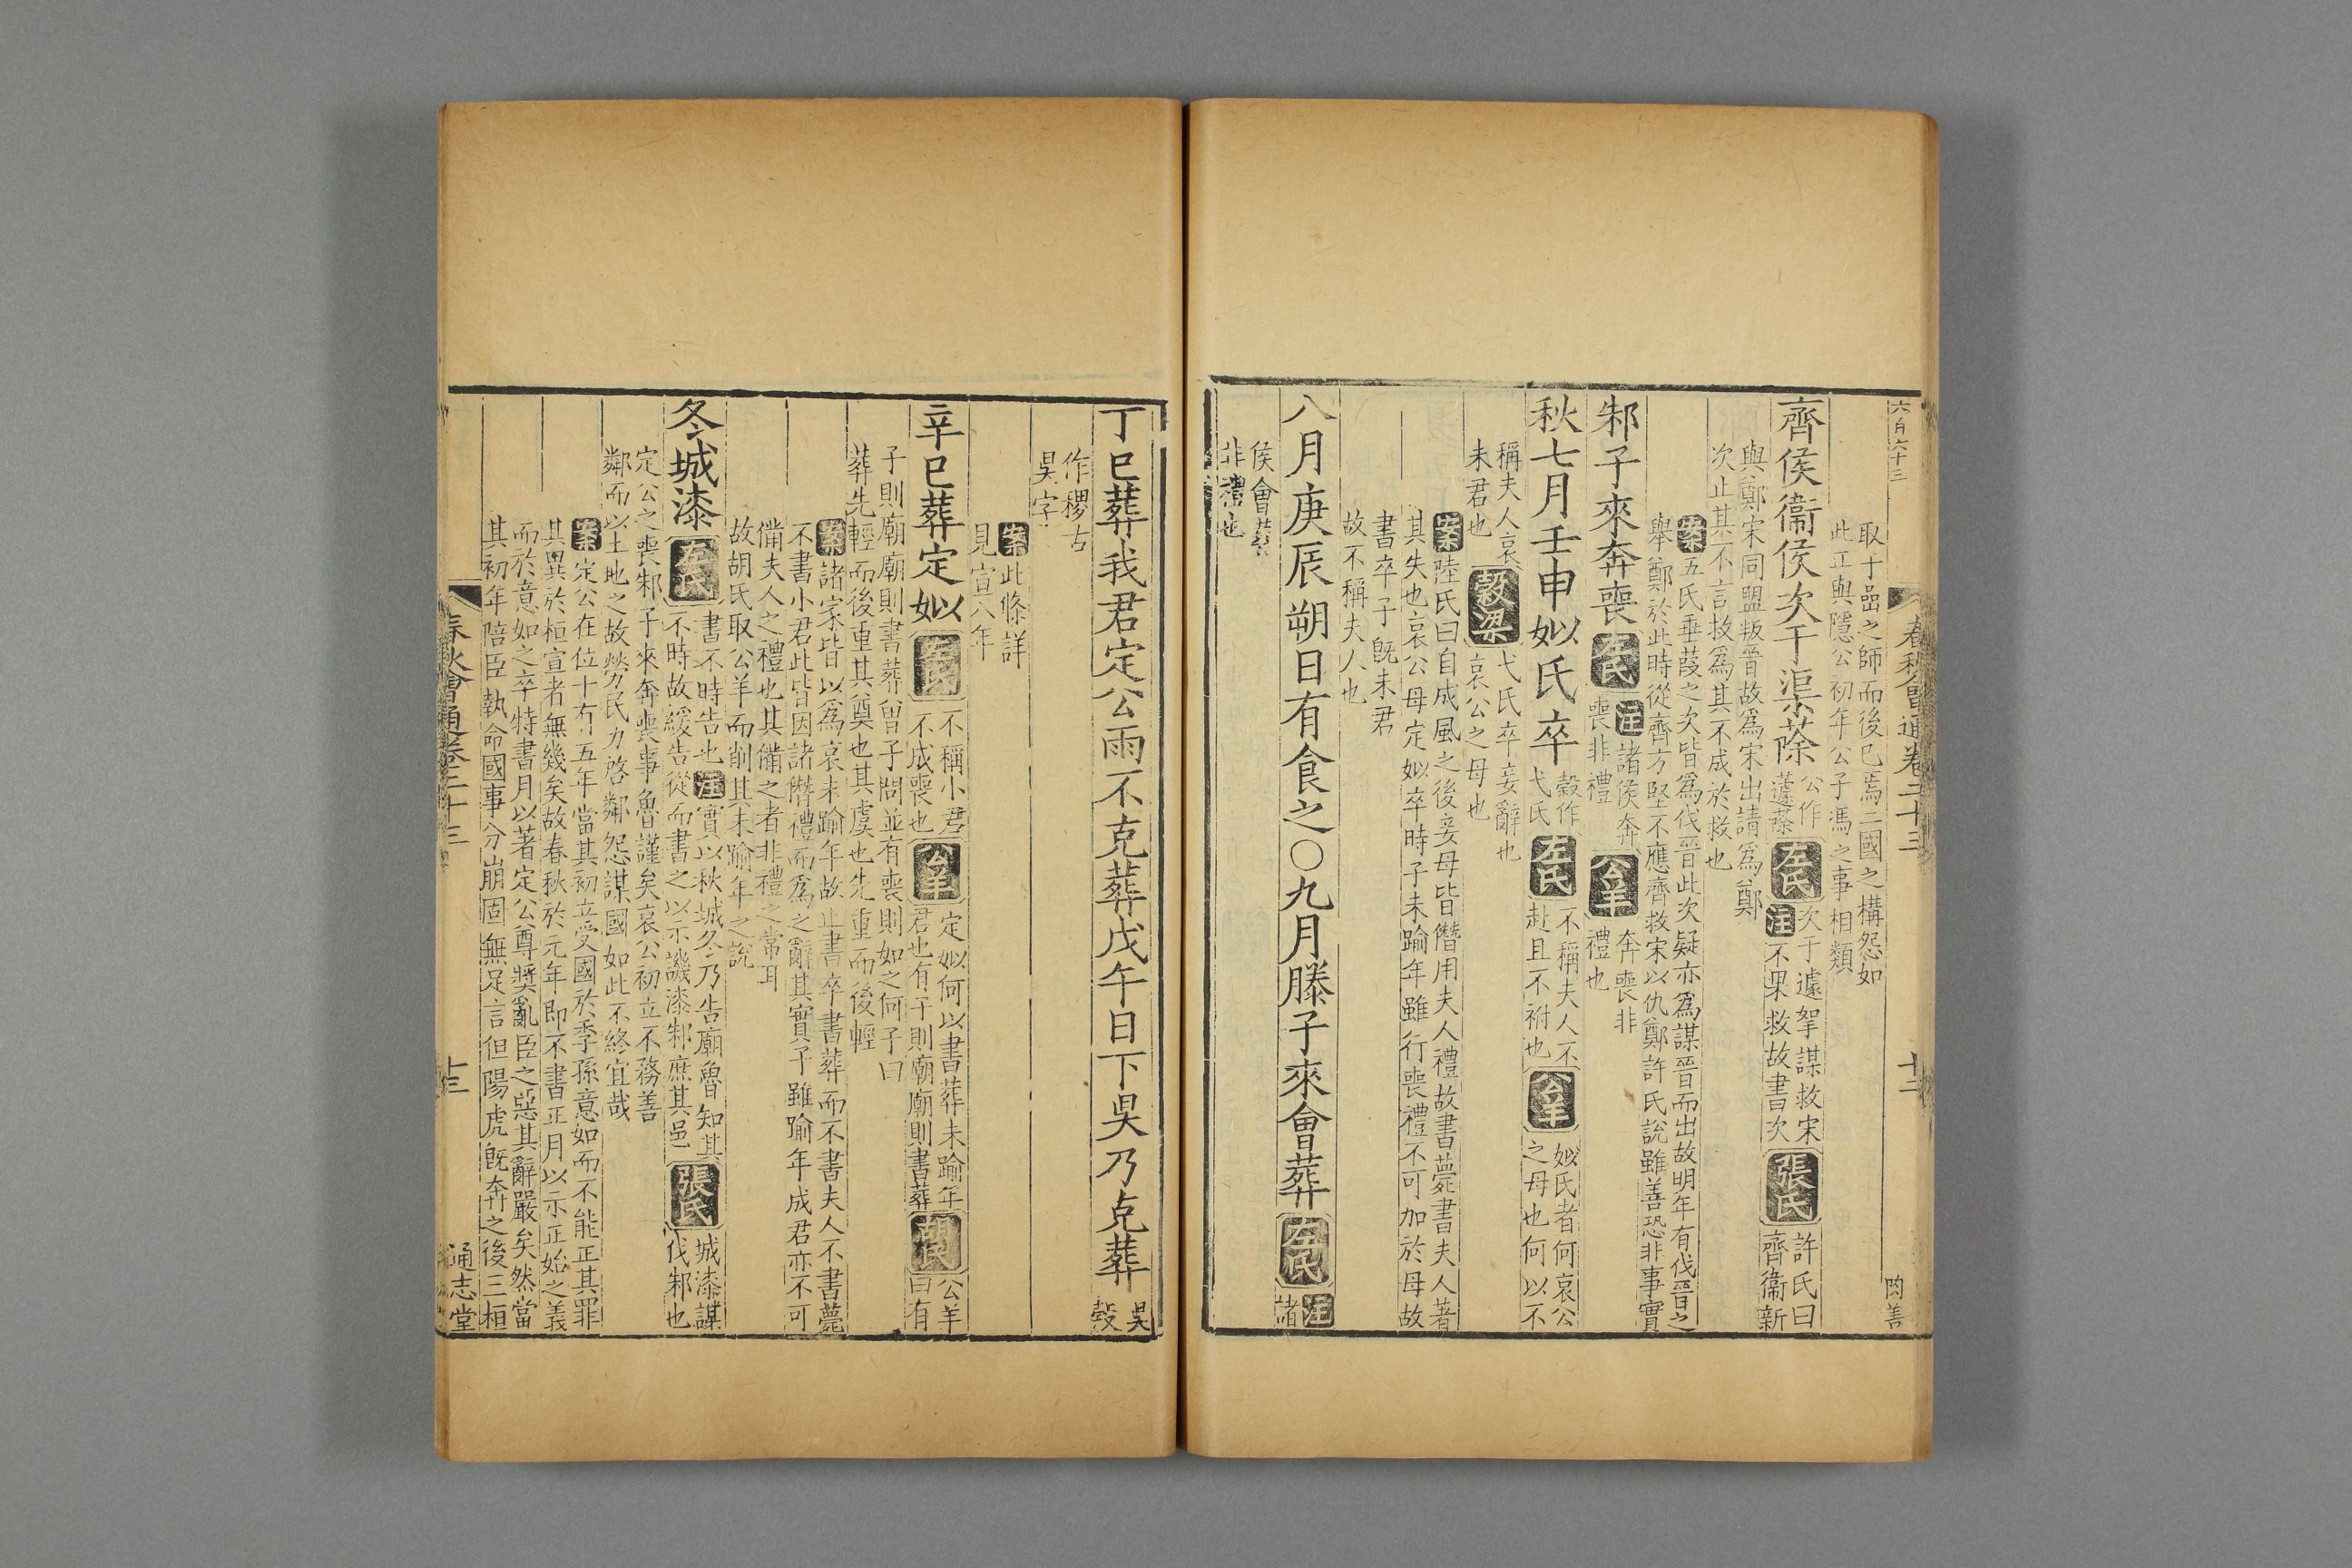 六百六十三
春秋會通卷二十三
十二
取十嵒之師而後已焉二國之構怨如
此正與隱公初年公子馮之事相類
齊侯衞侯次于渠蒢
公作
蘧蒢
左氏
次于蘧挐謀救宋
注
不果救故書次
張氏
許氏曰
齊衞新
與鄭宋同盟叛晉故爲宋出請爲鄭
次止其不言救爲其不成於救也
案
五氏垂葭之次皆爲伐晉此次疑亦爲謀晉而出故明年有伐晉之
舉鄭於此時從齊方堅不應齊救宋以仇鄭許氏說雖善恐非事實
邾子來奔喪
左氏
注
諸侯奔
喪非禮
公羊
奔喪非
禮也
秋七月壬申姒氏卒
穀作
弋氏
左氏
不稱夫人不
赴且不祔也
公羊
姒氏者何哀公
之母也何以不
稱夫人哀
未君也
穀梁
弋氏卒妾辭也
哀公之母也
案
陸氏曰自成風之後妾母皆僭用夫人禮故書薨書夫人著
其失也哀公母定姒卒時子未踰年雖行喪禮不可加於母故
書卒子旣未君
故不稱夫人也
八月庚辰朔日有食之○九月滕子來會葬
左氏
注
諸
侯會葬
非禮也
丁巳葬我君定公雨不克葬戊午日下昃乃克葬
昃
穀
作稷古
昃字
案
此條詳
見宣八年
辛巳葬定姒
左氏
不稱小君
不成喪也
公羊
定姒何以書葬未踰年
君也有子則廟廟則書葬
胡氏
公羊
曰有
子則廟廟則書葬曾子問並有喪則如之何子曰
葬先輕而後重其奠也其虞也先重而後輕
案
諸家皆以爲哀未踰年故止書卒書葬而不書夫人不書薨
不書小君此皆因諸僭禮而爲之辭其實子雖踰年成君亦不可
備夫人之禮也其備之者非禮之常耳
故胡氏取公羊而削其未踰年之說
冬城漆
左氏
書不時告也
注
實以秋城冬乃告廟魯知其
不時故緩告從而書之以示譏漆邾庶其邑
張氏
城漆謀
伐邾也
定公之喪邾子來奔喪事魯謹矣哀公初立不務善
鄰而以土地之故勞民力啓鄰怨謀國如此不終宜哉
案
定公在位十有五年當其初立受國於季孫意如而不能正其罪
其異於桓宣者無幾矣故春秋於元年即不書正月以示正始之義
而於意如之卒特書月以著定公尊奬亂臣之惡其辭嚴矣然當
其初年陪臣執命國事分崩固無足言但陽虎旣奔之後三桓
春秋會通卷二十三
十三
通志堂